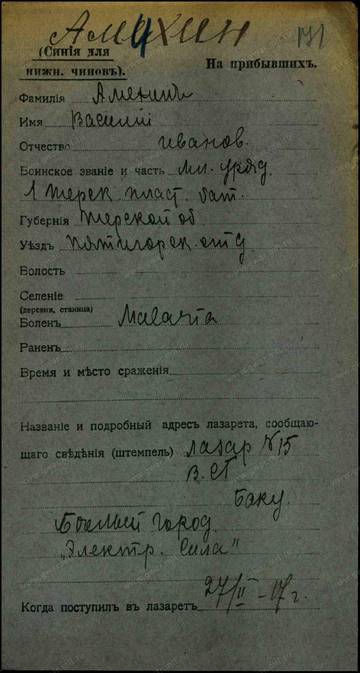 Амихин
4
191
(Синія для
нижн. чиновъ).
На прибывшихъ.
Фамилія Аменинъ
Имя Василій
Отчество Иванов.
Воинское званіе и часть мл. уряд.
1 Терек. пласт. бат.
Губернія Терской об
Уѣздъ Пятигорск. отд
Волость
Селеніе
(деревня, станица)
Боленъ Malaria
Раненъ
Время и мѣсто сраженія
Названіе и подробный адресъ лазарета, сообщаю-
щаго свѣдѣнія (штемпель) лазар №15
В.С.Г.
Баку.
Бѣлый городъ
„Электр. Сила"
Когда поступилъ въ лазаретъ 27/II - 17 г.